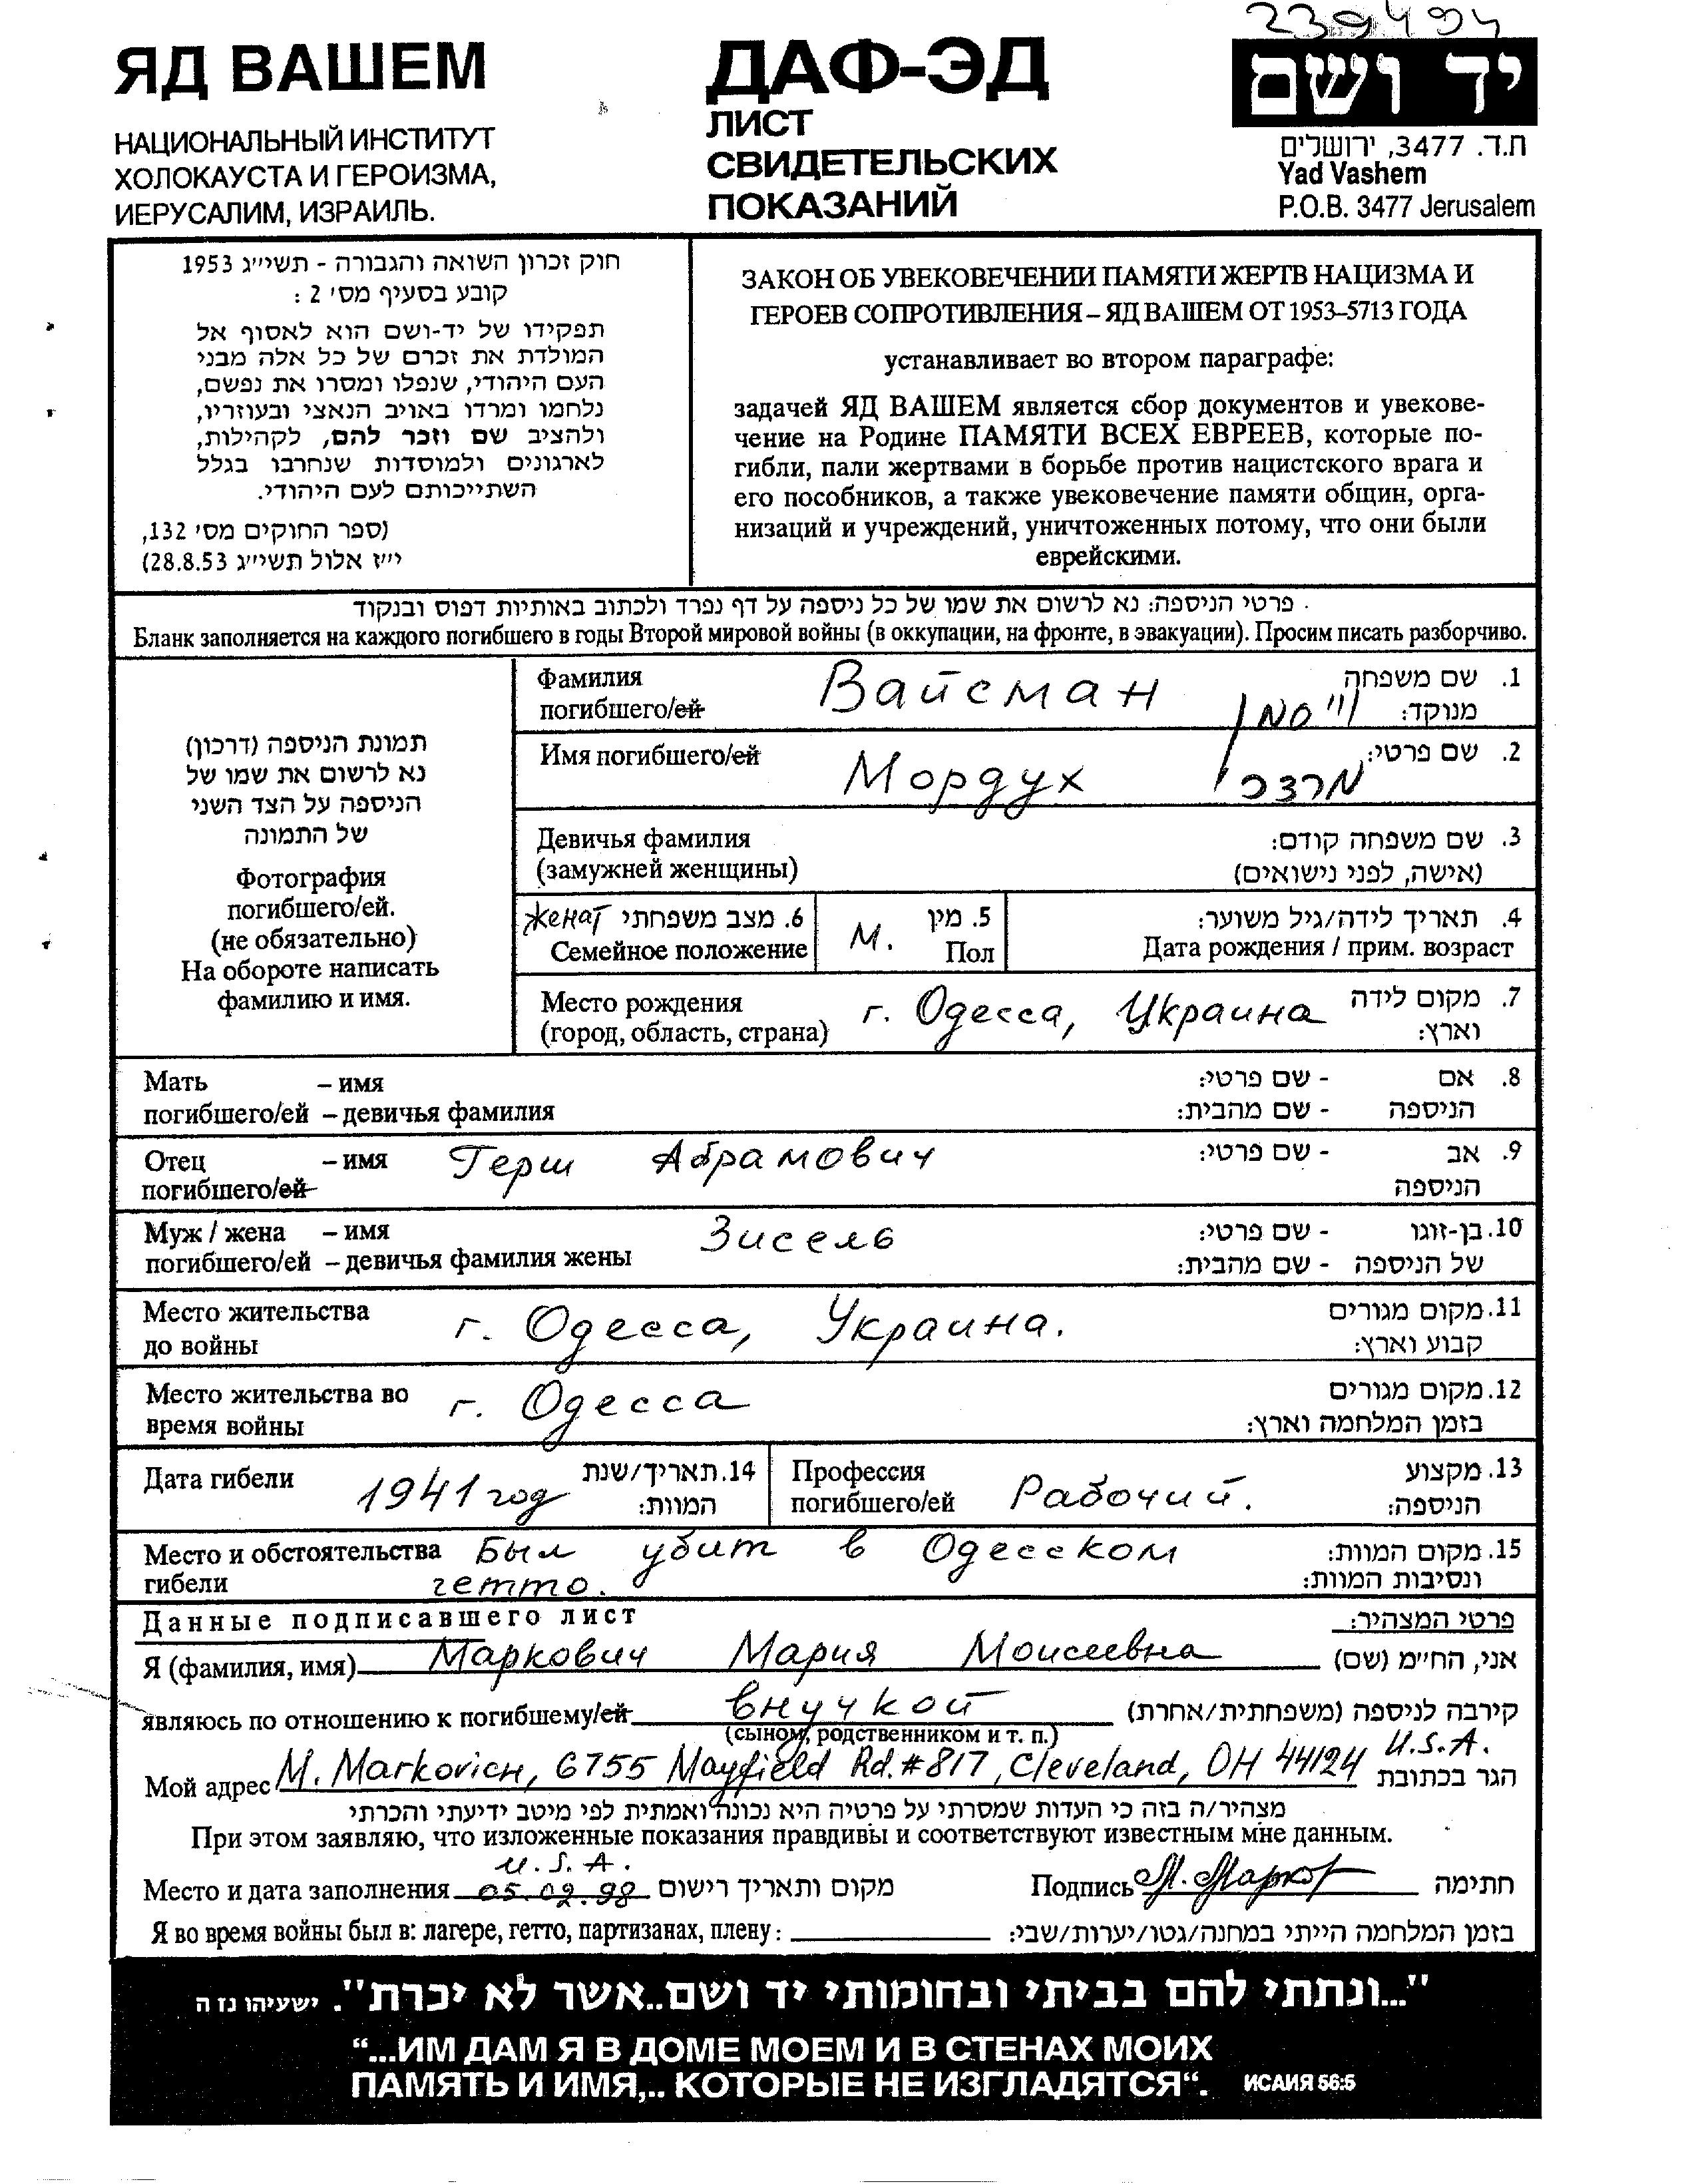 239494
ЯД ВАШЕМ
НАЦИОНАЛЬНЫЙ ИНСТИТУТ
ХОЛОКАУСТА И ГЕРОИЗМА,
ИЕРУСАЛИМ, ИЗРАИЛЬ.
ДАФ-ЭД
ЛИСТ
СВИДЕТЕЛЬСКИХ
ПОКАЗАНИЙ
יד ושם
ת.ד. 3477, ירושלים
Yad Vashem
P.O.B. 3477 Jerusalem
חוק זכרון השואה והגבורה - תשי״ג 1953
קובע בסעיף מס׳ 2 :
תפקידו של יד-ושם הוא לאסוף אל
המולדת את זכרם של כל אלה מבני
העם היהודי, שנפלו ומסרו את נפשם,
נלחמו ומרדו באויב הנאצי ובעוזריו,
ולהציב שם וזכר להם, לקהילות,
לארגונים ולמוסדות שנחרבו בגלל
השתייכותם לעם היהודי.
(ספר החוקים מס׳ 132,
י״ז אלול תשי״ג 28.8.53)
ЗАКОН ОБ УВЕКОВЕЧЕНИИ ПАМЯТИ ЖЕРТВ НАЦИЗМА И
ГЕРОЕВ СОПРОТИВЛЕНИЯ – ЯД ВАШЕМ ОТ 1953–5713 ГОДА
устанавливает во втором параграфе:
задачей ЯД ВАШЕМ является сбор документов и увекове-
чение на Родине ПАМЯТИ ВСЕХ ЕВРЕЕВ, которые по-
гибли, пали жертвами в борьбе против нацистского врага и
его пособников, а также увековечение памяти общин, орга-
низаций и учреждений, уничтоженных потому, что они были
еврейскими.
פרטי הניספה: נא לרשום את שמו של כל ניספה על דף נפרד ולכתוב באותיות דפוס ובנקוד.
Бланк заполняется на каждого погибшего в годы Второй мировой войны (в оккупации, на фронте, в эвакуации). Просим писать разборчиво.
תמונת הניספה (דרכון)
נא לרשום את שמו של
הניספה על הצד השני
של התמונה
Фотография
погибшего/ей.
(не обязательно)
На обороте написать
фамилию и имя.
Фамилия Вайсман 1. שם משפחה
погибшего/ей וייסמן מנוקד:
Имя погибшего/ей Мордух מרדכי 2. שם פרטי:
Девичья фамилия 3. שם משפחה קודם:
(замужней женщины) (אישה, לפני נישואים)
женат 6. מצב משפחתי М. 5. מין 4. תאריך לידה/גיל משוער:
Семейное положение Пол Дата рождения / прим. возраст
Место рождения г. Одесса, Украина 7. מקום לידה
(город, область, страна) וארץ:
Мать – имя 8. אם - שם פרטי:
погибшего/ей – девичья фамилия הניספה - שם מהבית:
Отец – имя Герш Абрамович 9. אב - שם פרטי:
погибшего/ей הניספה
Муж / жена – имя Зисель 10. בן-זוגו - שם פרטי:
погибшего/ей – девичья фамилия жены של הניספה - שם מהבית:
Место жительства г. Одесса, Украина. 11. מקום מגורים
до войны קבוע וארץ:
Место жительства во г. Одесса 12. מקום מגורים
время войны בזמן המלחמה וארץ:
Дата гибели 1941 год 14. תאריך/שנת Профессия Рабочий. 13. מקצוע
המוות: погибшего/ей הניספה:
Место и обстоятельства Был убит в Одесском 15. מקום המוות:
гибели гетто. ונסיבות המוות:
Данные подписавшего лист פרטי המצהיר:
Я (фамилия, имя) Маркович Мария Моисеевна אני, החי״מ (שם)
являюсь по отношению к погибшему/ей внучкой קירבה לניספה (משפחתית/אחרת)
(сыном, родственником и т. п.)
Мой адрес M. Markovich, 6755 Mayfield Rd. #817, Cleveland, OH 44124 U.S.A. הגר בכתובת
מצהיר/ה בזה כי העדות שמסרתי על פרטיה היא נכונה ואמתית לפי מיטב ידיעתי והכרתי
При этом заявляю, что изложенные показания правдивы и соответствуют известным мне данным.
U.S.A.
Место и дата заполнения 05.02.98 מקום ותאריך רישום Подпись М. Марков חתימה
Я во время войны был в: лагере, гетто, партизанах, плену: בזמן המלחמה הייתי במחנה/גטו/יערות/שבי:
"...ונתתי להם בביתי ובחומותי יד ושם..אשר לא יכרת". ישעיהו נז ה
“...ИМ ДАМ Я В ДОМЕ МОЕМ И В СТЕНАХ МОИХ
ПАМЯТЬ И ИМЯ,.. КОТОРЫЕ НЕ ИЗГЛАДЯТСЯ“. ИСАИЯ 56:5